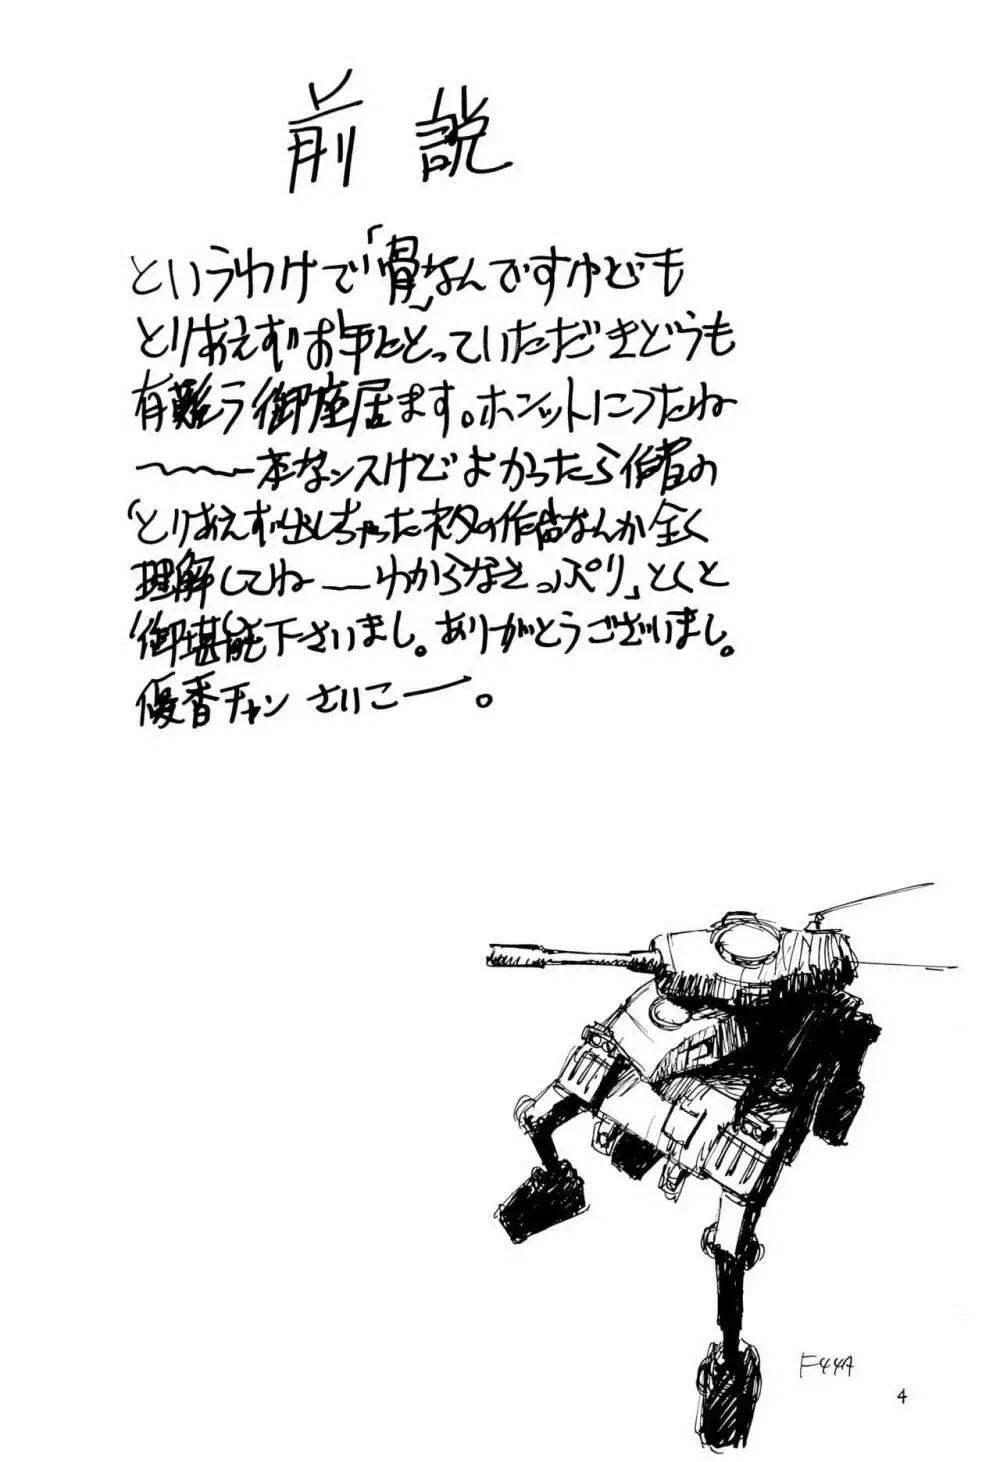 前説
というわけで「骨」なんですけども
とりあえずお手にとっていただきどうも
有難う御座居ます。ホンットにつたね
〜〜〜本なンスけどよかったら作者の
「とりあえず出しちゃったネタの作品なんか全く
理解してね——わからなさっぷり」とくと
御堪能下さいまし。ありがとうございまし。
優香チャン さいこー——。
F44A
4